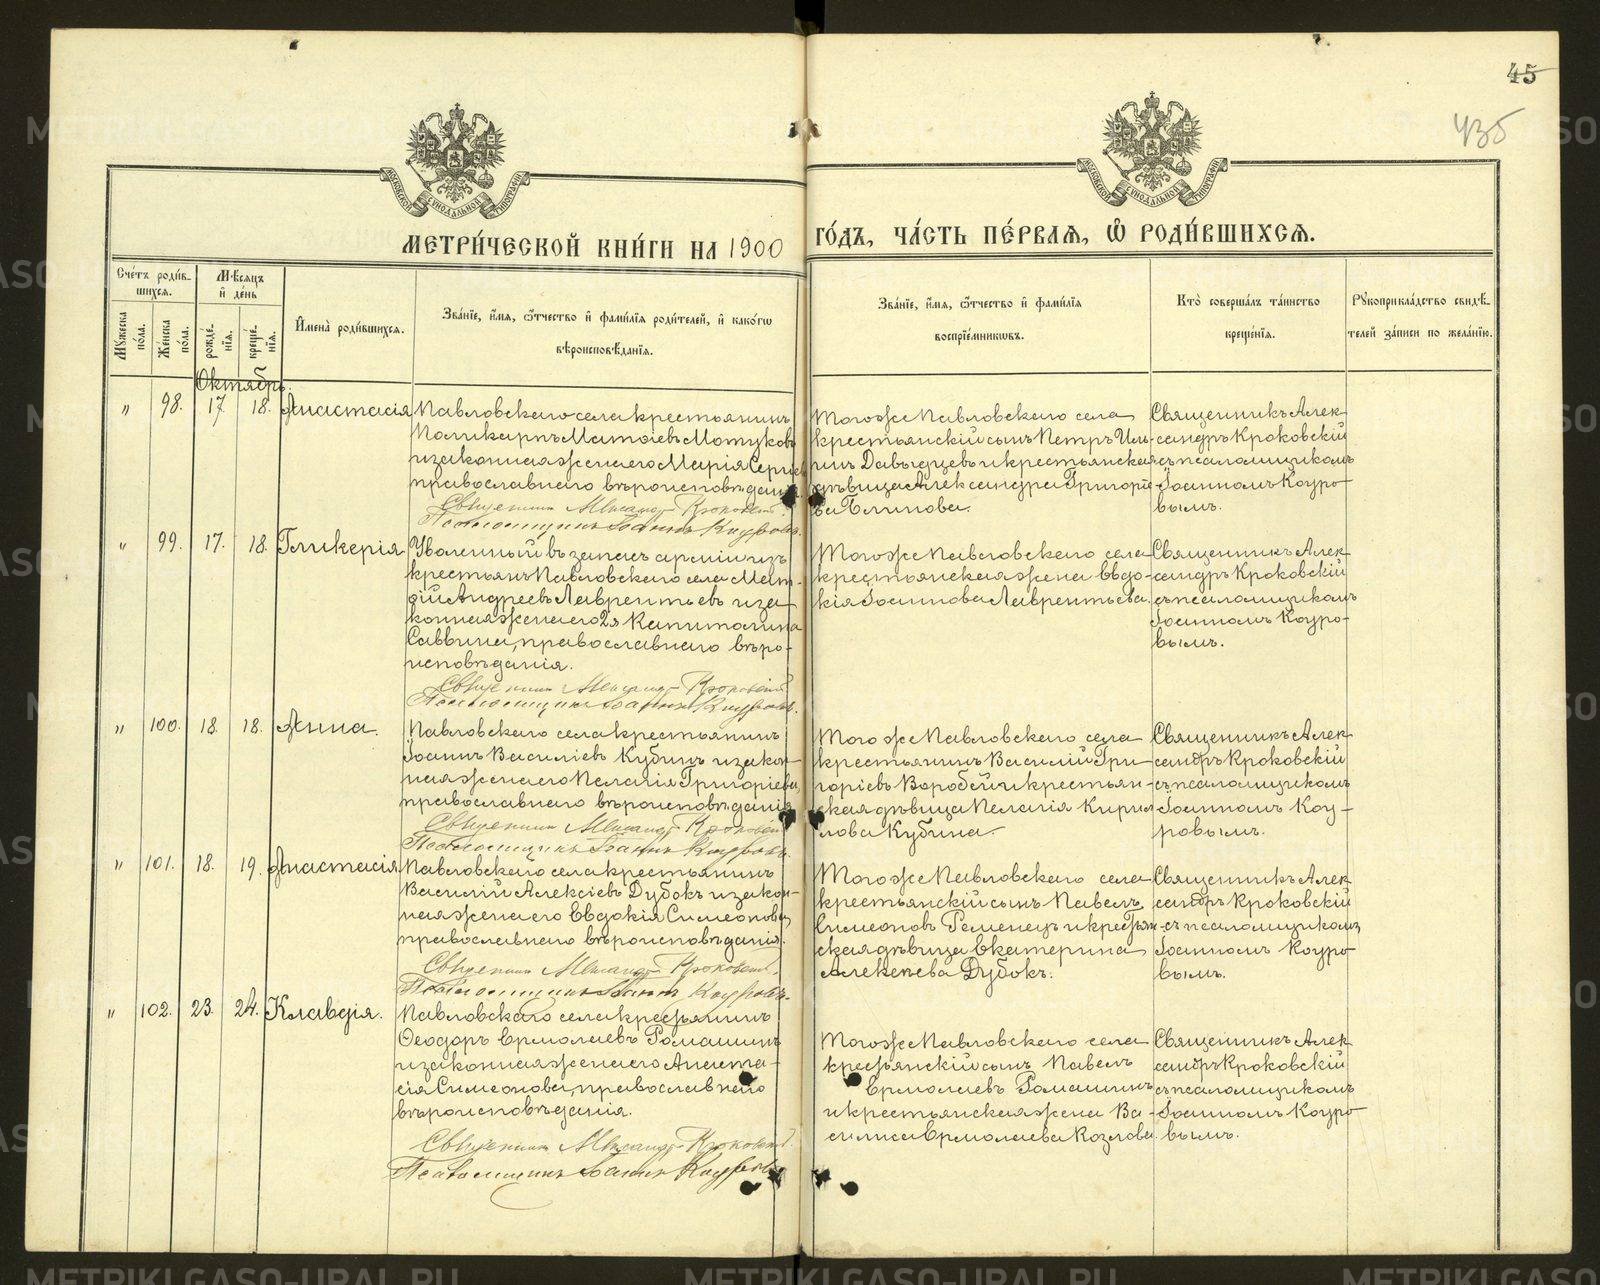 45
435
МОСКОВСКОЙ СѴНОДАЛЬНОЙ ТИПОГРАФИИ
МОСКОВСКОЙ СѴНОДАЛЬНОЙ ТИПОГРАФИИ
МЕТРИ́ЧЕСКОЙ КНИ́ГИ НА 1900 ГО́ДЪ, ЧА́СТЬ ПЕ́РВАЯ, Ѡ РОДИ́ВШИХСЯ.
Сче́тъ роди́в-
шихся.
Мѣ́сяцъ
и҆ де́нь
Мꙋ́жеска по́ла.
Же́нска по́ла.
рожде́-
нїя.
креще́-
нїя.
И҆мена̀ роди́вшихся.
Зва́нїе, и҆́мя, ѻ҆́тчество и҆ фами́лїя роди́телей, и҆ како́гѡ
вѣроисповѣ́данїя.
Зва́нїе, и҆́мя, ѻ҆́тчество и҆ фами́лїя
воспрїе́мникѡвъ.
Кто̀ соверша́лъ та́инство
креще́нїя.
Рꙋкоприкла́дство свидѣ́-
телей за́писи по жела́нїю.
Октябрь.
" 98. 17. 18. Анастасія
Павловскаго села крестьянинъ
Поликарпъ Матѳіевъ Мотуковъ
и законная жена его Марія Сергіева
православнаго вѣроисповѣданія.
Священникъ Александръ Кроковскій
Псаломщикъ Іоаннъ Кауровъ.
Того же Павловскаго села
крестьянскій сынъ Петръ Иль-
инъ Давыдцевъ и крестьянская
дѣвица Александра Григоріе-
ва Блинова.
Священникъ Алек-
сандръ Кроковскій
съ псаломщикомъ
Іоанномъ Кауро-
вымъ.
" 99. 17. 18. Гликерія
Уволенный въ запасъ арміи изъ
крестьянъ Павловскаго села Мат-
ѳій Андреевъ Лаврентьевъ и за-
конная жена его 2я Капитолина
Саввина, православнаго вѣро-
исповѣданія.
Священникъ Александръ Кроковскій
Псаломщикъ Іоаннъ Кауровъ.
Того же Павловскаго села
крестьянская жена Евдо-
кія Іоаннова Лаврентьева.
Священникъ Алек-
сандръ Кроковскій
съ псаломщикомъ
Іоанномъ Кауро-
вымъ.
" 100. 18. 18. Анна.
Павловскаго села крестьянинъ
Іоаннъ Василіевъ Кубинъ и закон-
ная жена его Пелагія Григоріева,
православнаго вѣроисповѣданія
Священникъ Александръ Кроковскій
Псаломщикъ Іоаннъ Кауровъ.
Того же Павловскаго села
крестьянинъ Василій Гри-
горіевъ Воробей и крестьян-
ская дѣвица Пелагія Кирил-
лова Кубина.
Священникъ Алек-
сандръ Кроковскій
съ псаломщикомъ
Іоанномъ Кау-
ровымъ.
" 101. 18. 19. Анастасія
Павловскаго села крестьянинъ
Василій Алексіевъ Дубокъ и закон-
ная жена его Евдокія Симеонова,
православнаго вѣроисповѣданія.
Священникъ Александръ Кроковскій.
Псаломщикъ Іоаннъ Кауровъ.
Того же Павловскаго села
крестьянскій сынъ Павелъ
Симеоновъ Ременецъ и крестьян-
ская дѣвица Екатерина
Алексіева Дубокъ.
Священникъ Алек-
сандръ Кроковскій
съ псаломщикомъ
Іоанномъ Кауро-
вымъ.
" 102. 23. 24. Клавдія.
Павловскаго села крестьянинъ
Ѳеодоръ Ермолаевъ Ромашинъ
и законная жена его Анаста-
сія Симеонова, православнаго
вѣроисповѣданія.
Священникъ Александръ Кроковскій
Псаломщикъ Іоаннъ Кауровъ
Того же Павловскаго села
крестьянскій сынъ Павелъ
Ермолаевъ Ромашинъ
и крестьянская жена Ва-
силиса Ермолаева Козлова.
Священникъ Алек-
сандръ Кроковскій
съ псаломщикомъ
Іоанномъ Кауро-
вымъ.
METRIKI.GASO-URAL.RU